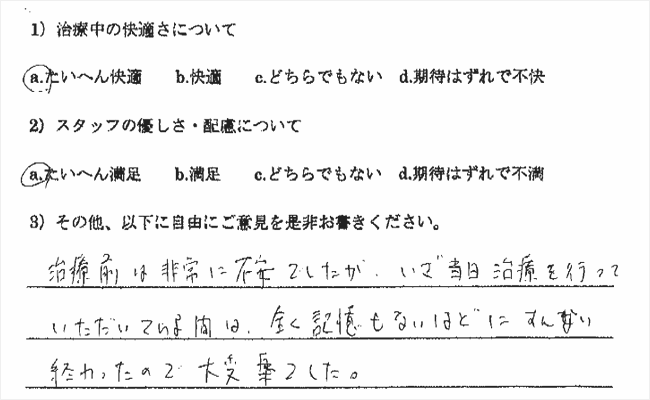 1）治療中の快適さについて
a.たいへん快適 b.快適 c.どちらでもない d.期待はずれで不快
2）スタッフの優しさ・配慮について
a.たいへん満足 b.満足 c.どちらでもない d.期待はずれで不満
3）その他、以下に自由にご意見を是非お書きください。
治療前は非常に不安でしたが、いざ当日治療を行って
いただいている間は、全く記憶もないほどに
終わったので大変楽でした。